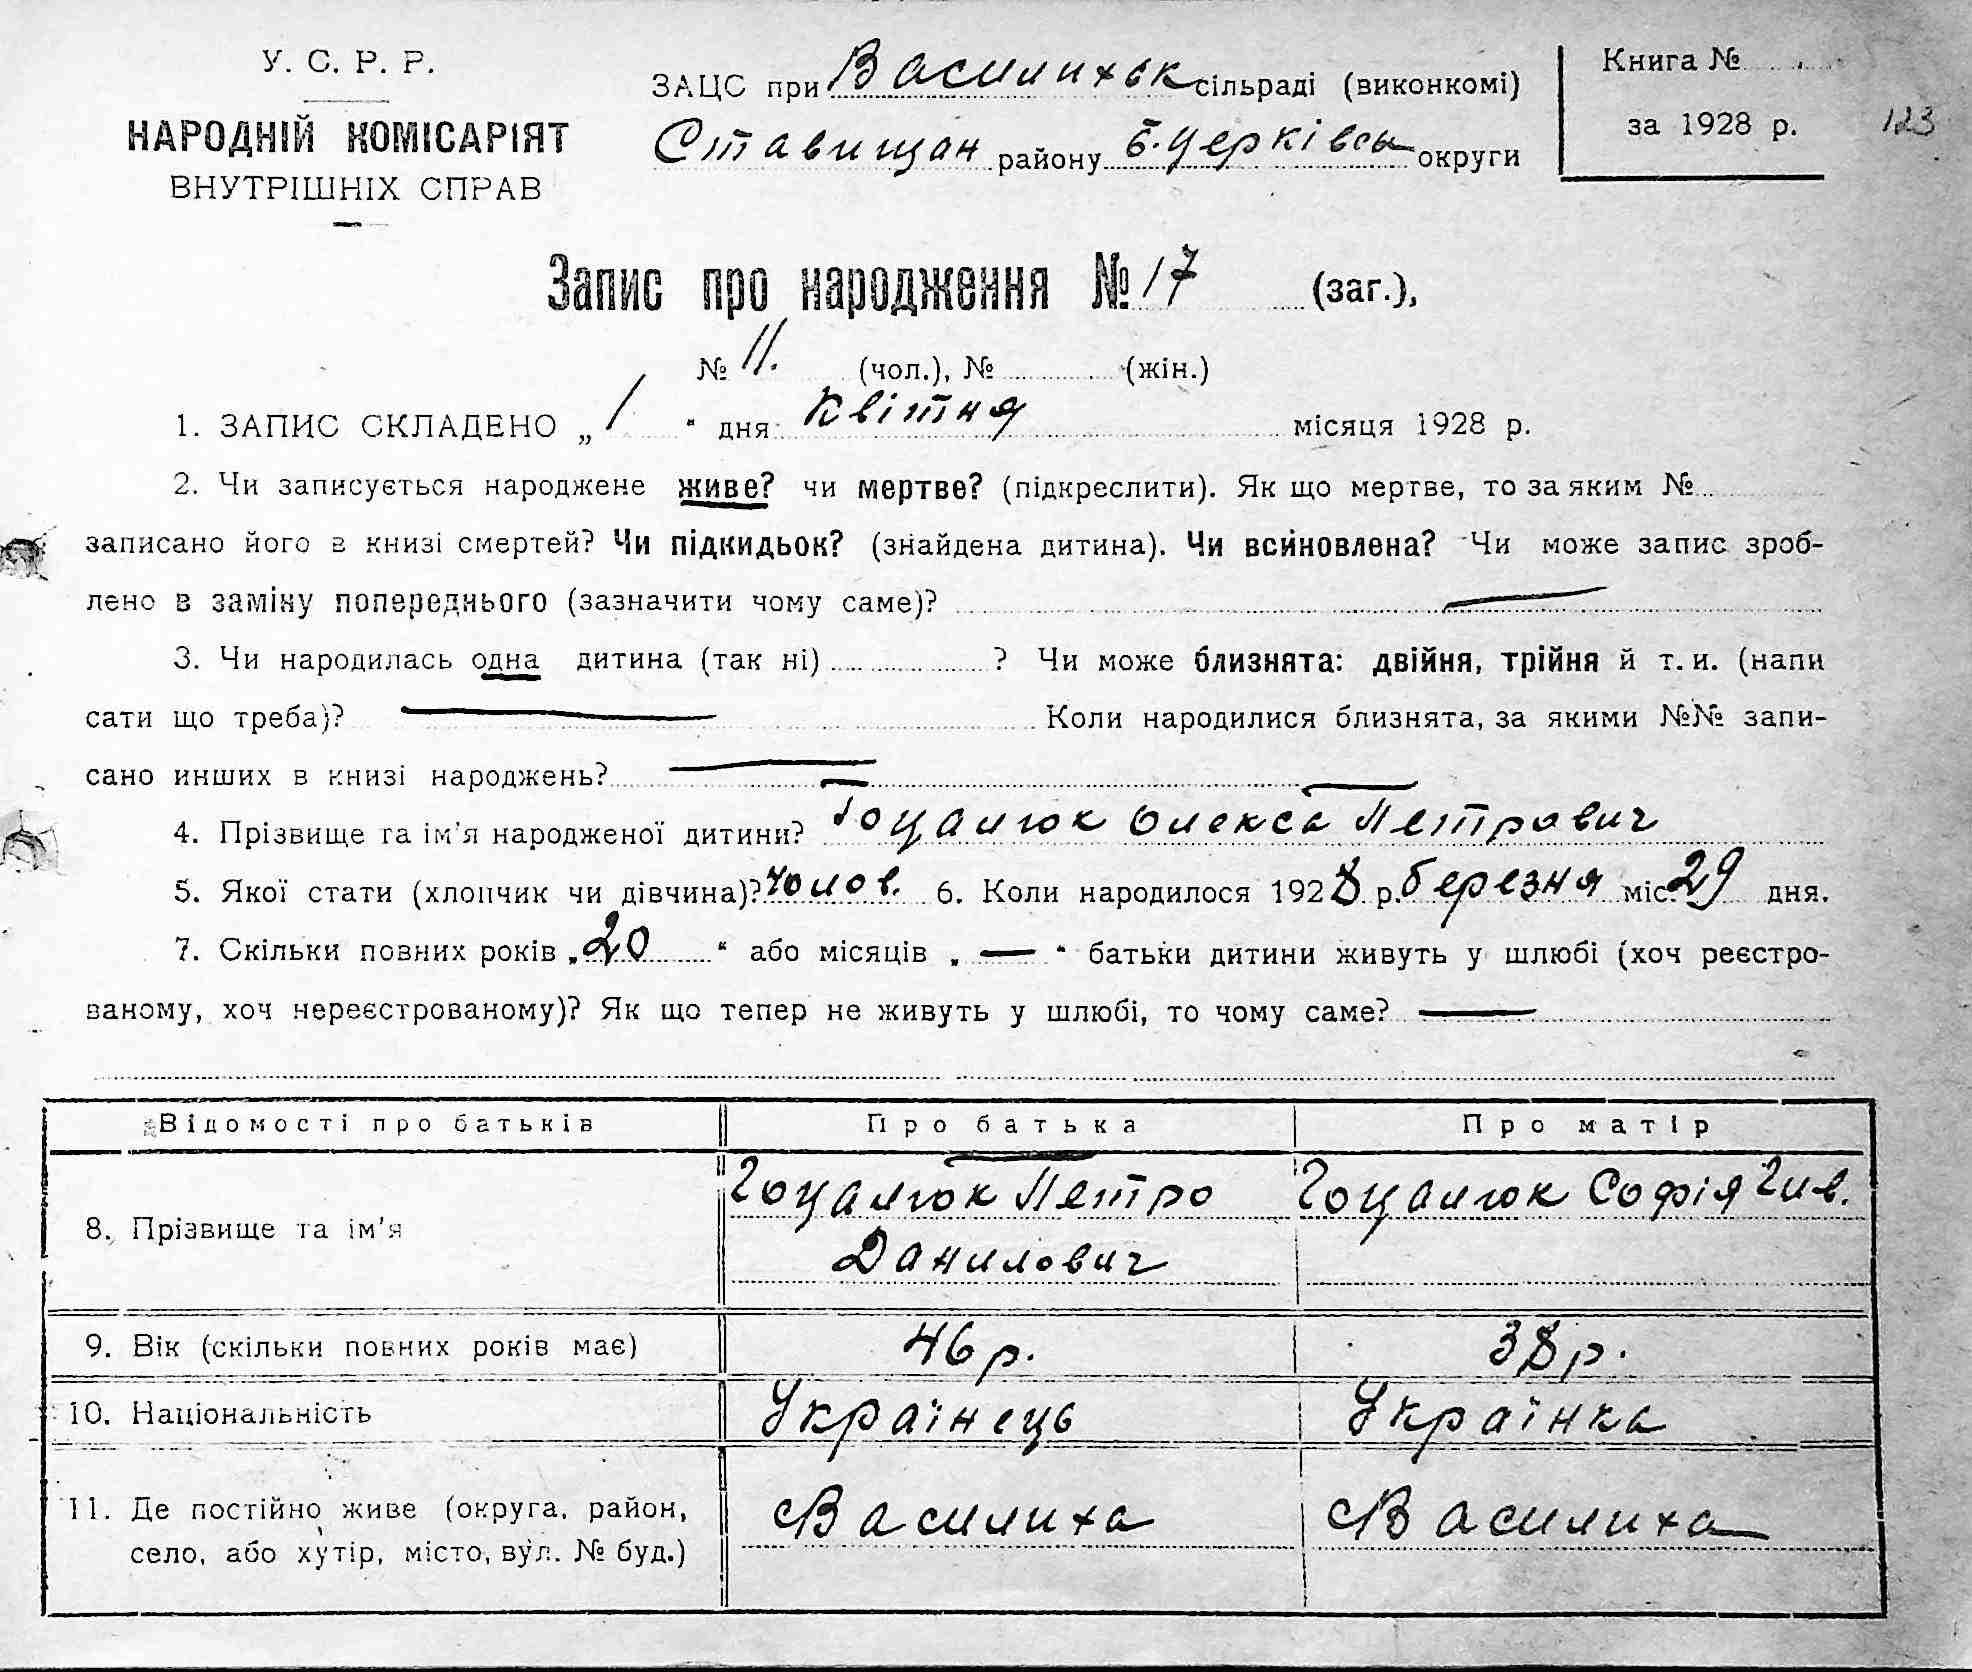 У. С. Р. Р.
НАРОДНІЙ КОМІСАРІЯТ
ВНУТРІШНІХ СПРАВ
ЗАЦС при Василихськ сільраді (виконкомі)
Ставищан району Б. Церківськ округи
Книга №
за 1928 р.
123
Запис про народження № 17 (заг.),
№ 11. (чол.), № (жін.)
1. ЗАПИС СКЛАДЕНО „ 1 “ дня Квітня місяця 1928 р.
2. Чи записується народжене живе? чи мертве? (підкреслити). Як що мертве, то за яким №
записано його в книзі смертей? Чи підкидьок? (знайдена дитина). Чи всиновлена? Чи може запис зроб-
лено в заміну попереднього (зазначити чому саме)? —
3. Чи народилась одна дитина (так ні) ? Чи може близнята: двійня, трійня й т. и. (напи
сати що треба)? — Коли народилися близнята, за якими №№ запи-
сано инших в книзі народжень? —
4. Прізвище та ім'я народженої дитини? Гоцалюк Олекса Петрович
5. Якої стати (хлопчик чи дівчина)? Чолов. 6. Коли народилося 1928 р. березня міс. 29 дня.
7. Скільки повних років „ 20 “ або місяців „ — “ батьки дитини живуть у шлюбі (хоч реєстро-
ваному, хоч нереєстрованому)? Як що тепер не живуть у шлюбі, то чому саме? —
Відомості про батьків Про батька Про матір
8. Прізвище та ім'я Гоцалюк Петро Данилович Гоцалюк Софія
9. Вік (скільки повних років має) 46 р. 38 р.
10. Національність Українець Українка
11. Де постійно живе (округа, район,
село, або хутір, місто, вул. № буд.) Василиха Василиха